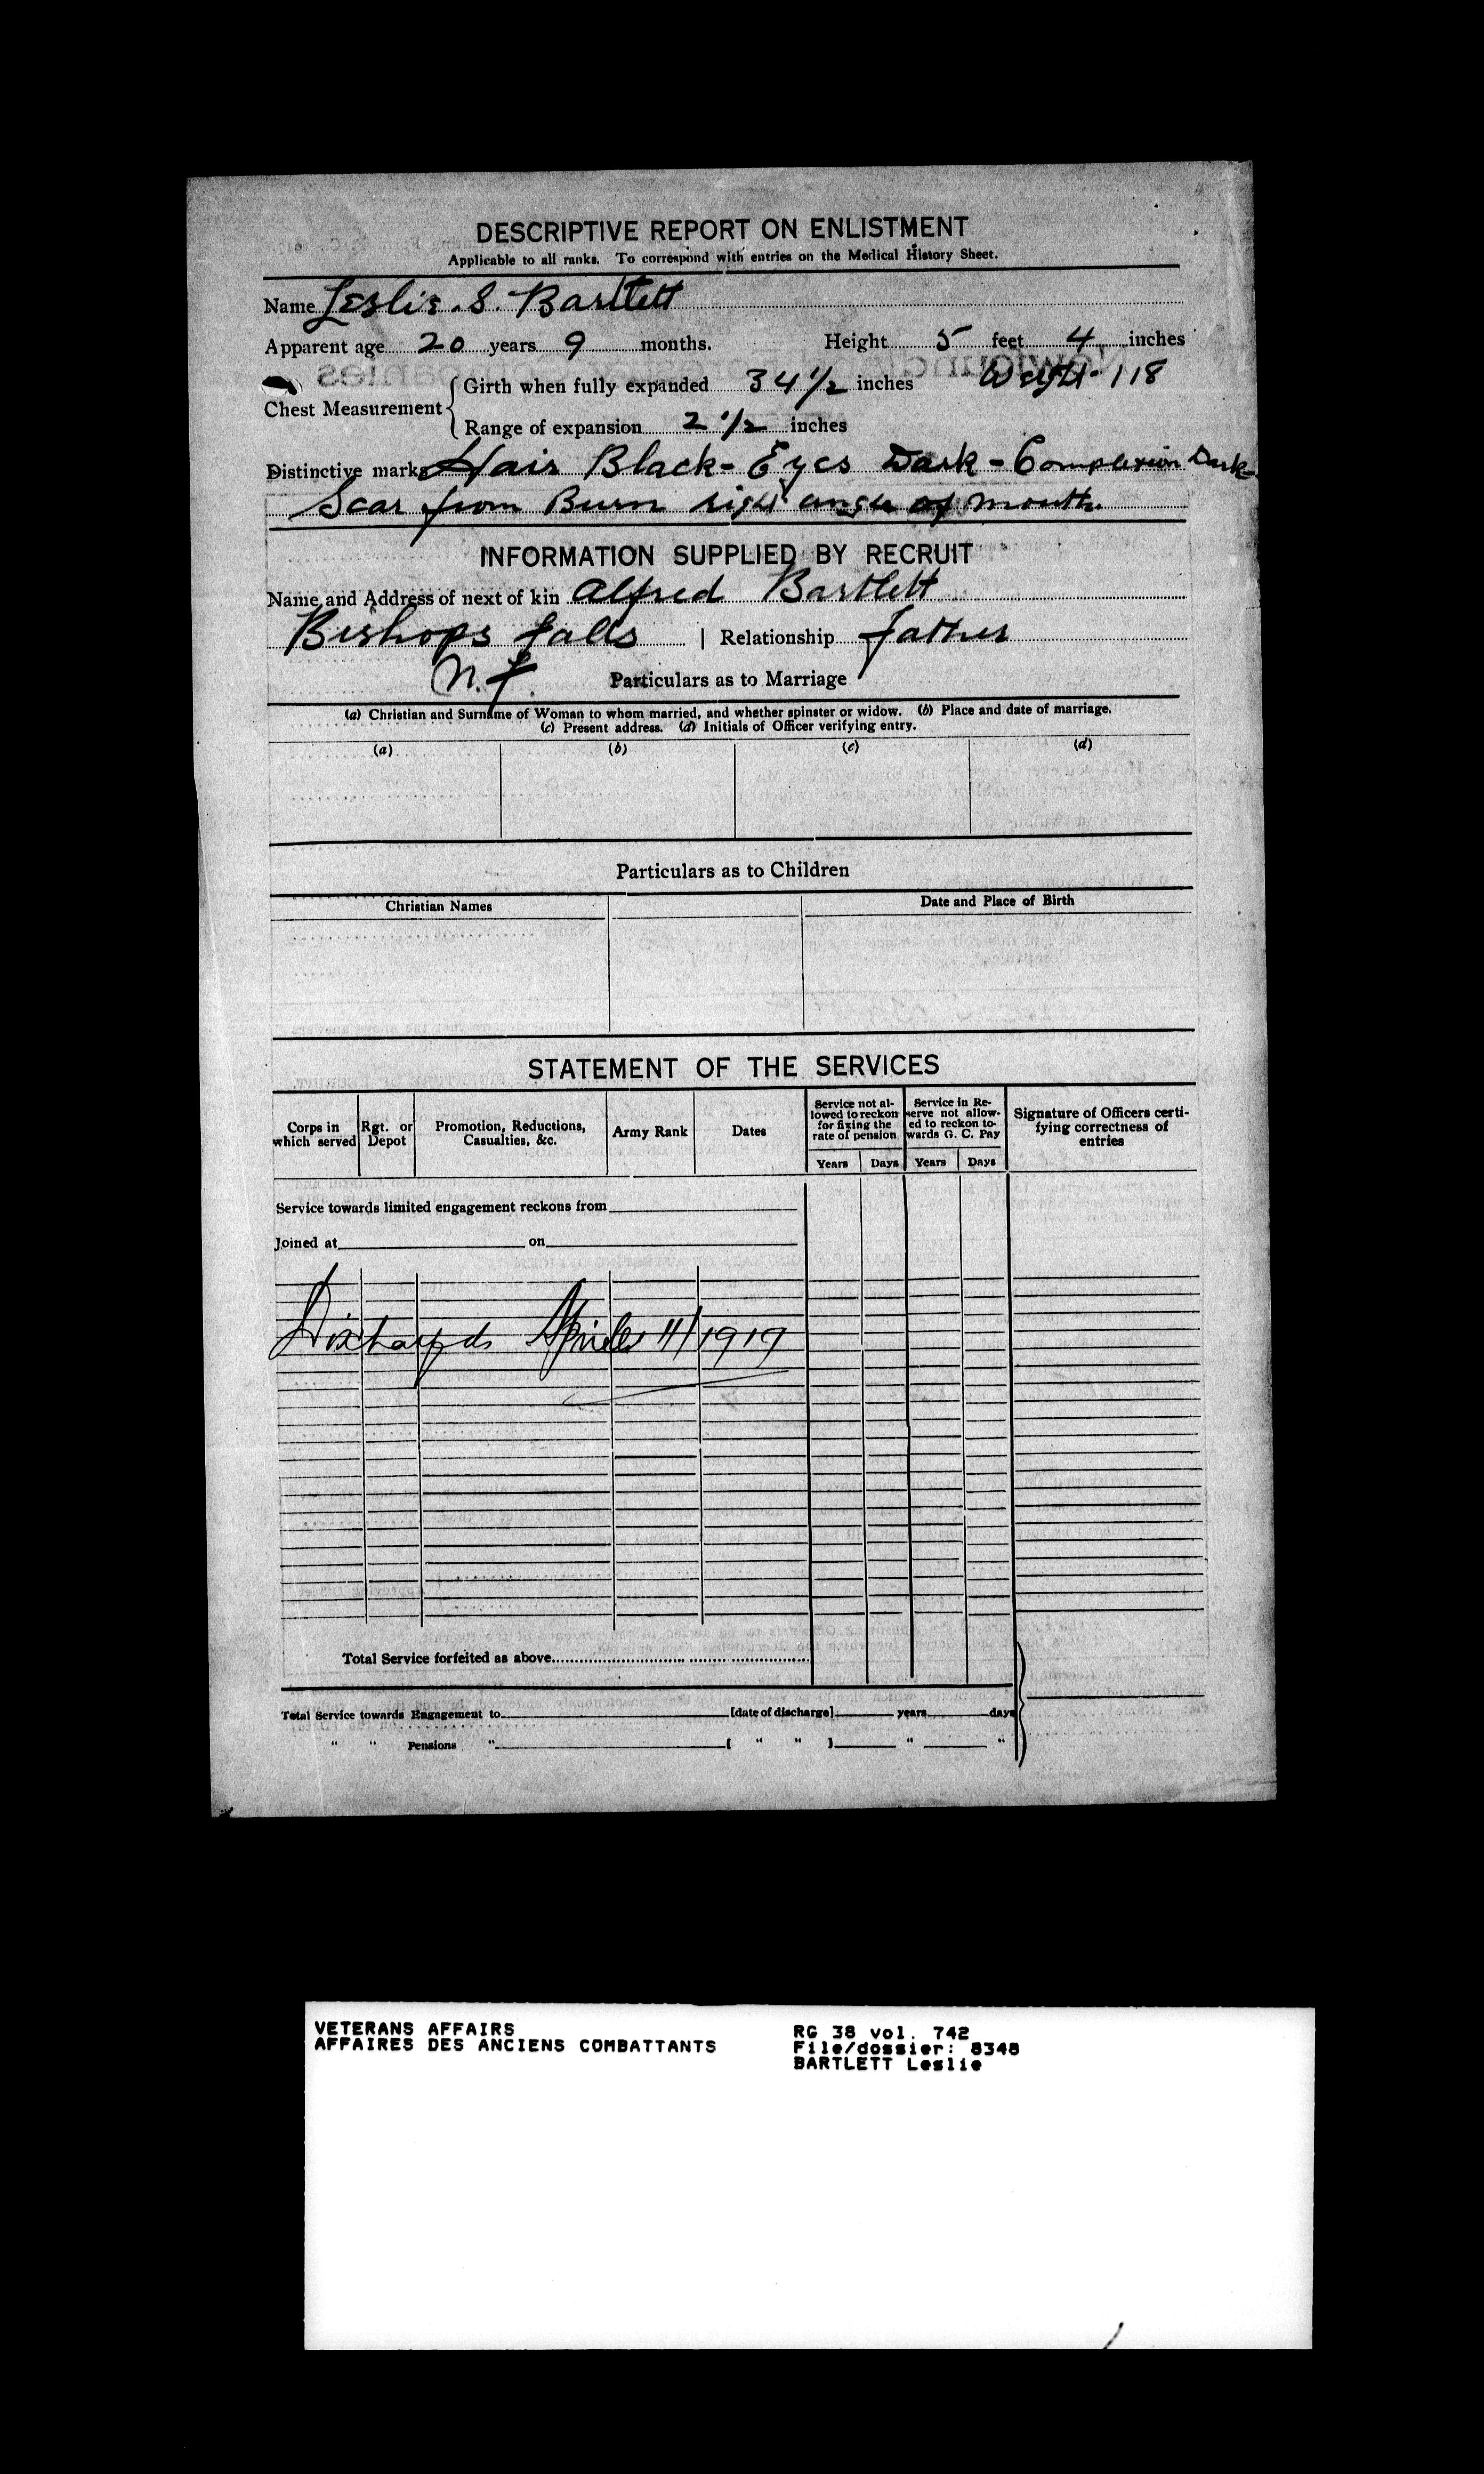 DESCRIPTIVE REPORT ON ENLISTMENT
Applicable to all ranks. To correspond with entries on the Medical History Sheet.
Name Leslie. S. Bartlett
Apparent age 20 years 9 months. Height 5 feet 4 inches
Girth when fully expanded 34 1/2 inches Weight- 118
Chest Measurement
Range of expansion 2 1/2 inches
Distinctive marks Hair Black- Eyes Dark - Complexion Dark-
Scar from Burn right angle of mouth.
INFORMATION SUPPLIED BY RECRUIT
Name and Address of next of kin Alfred Bartlett
Bishops Falls | Relationship Father
N.F.
Particulars as to Marriage
(a) Christian and Surname of Woman to whom married, and whether spinster or widow. (b) Place and date of marriage.
(c) Present address. (d) Initials of Officer verifying entry.
(a) (b) (c) (d)
Particulars as to Children
Christian Names Date and Place of Birth
STATEMENT OF THE SERVICES
Corps in which served Rgt. or Depot Promotion, Reductions, Casualties, &c. Army Rank Dates Service not allowed to reckon for fixing the rate of pension Service in Reserve not allowed to reckon towards G. C. Pay Signature of Officers certifying correctness of entries
Years Days Years Days
Service towards limited engagement reckons from
Joined at on
April 11/1919
Total Service forfeited as above
Total Service towards Engagement to [date of discharge] years days
" " Pensions " [ " " ] " "
VETERANS AFFAIRS RG 38 vol. 742
AFFAIRES DES ANCIENS COMBATTANTS File/dossier: 8348
BARTLETT Leslie